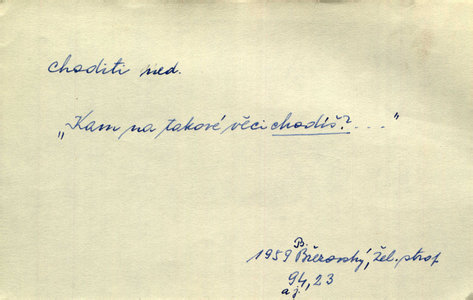 choditi ned.
„Kam na takové věci chodíš? . . . "
B.
1959 Březovský, Žel. strop
94, 23
a j.